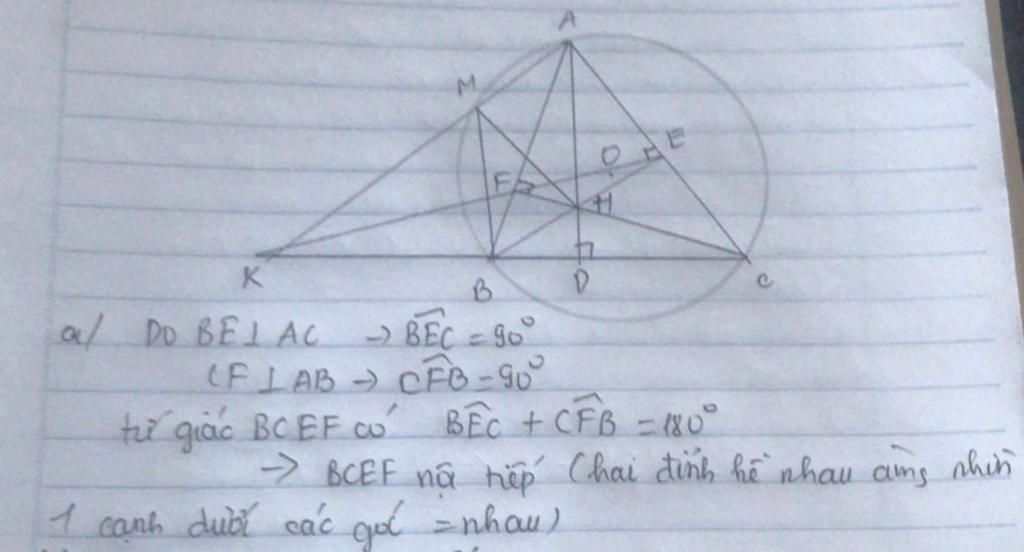 A
M
E
O
F
H
K
B
D
C
a/ Do BE⊥AC → B̂EC = 90°
CF⊥AB → ĈFB = 90°
tứ giác BCEF có B̂EC + ĈFB = 180°
→ BCEF nội tiếp (hai đỉnh kề nhau cùng nhìn
1 cạnh dưới các góc = nhau)